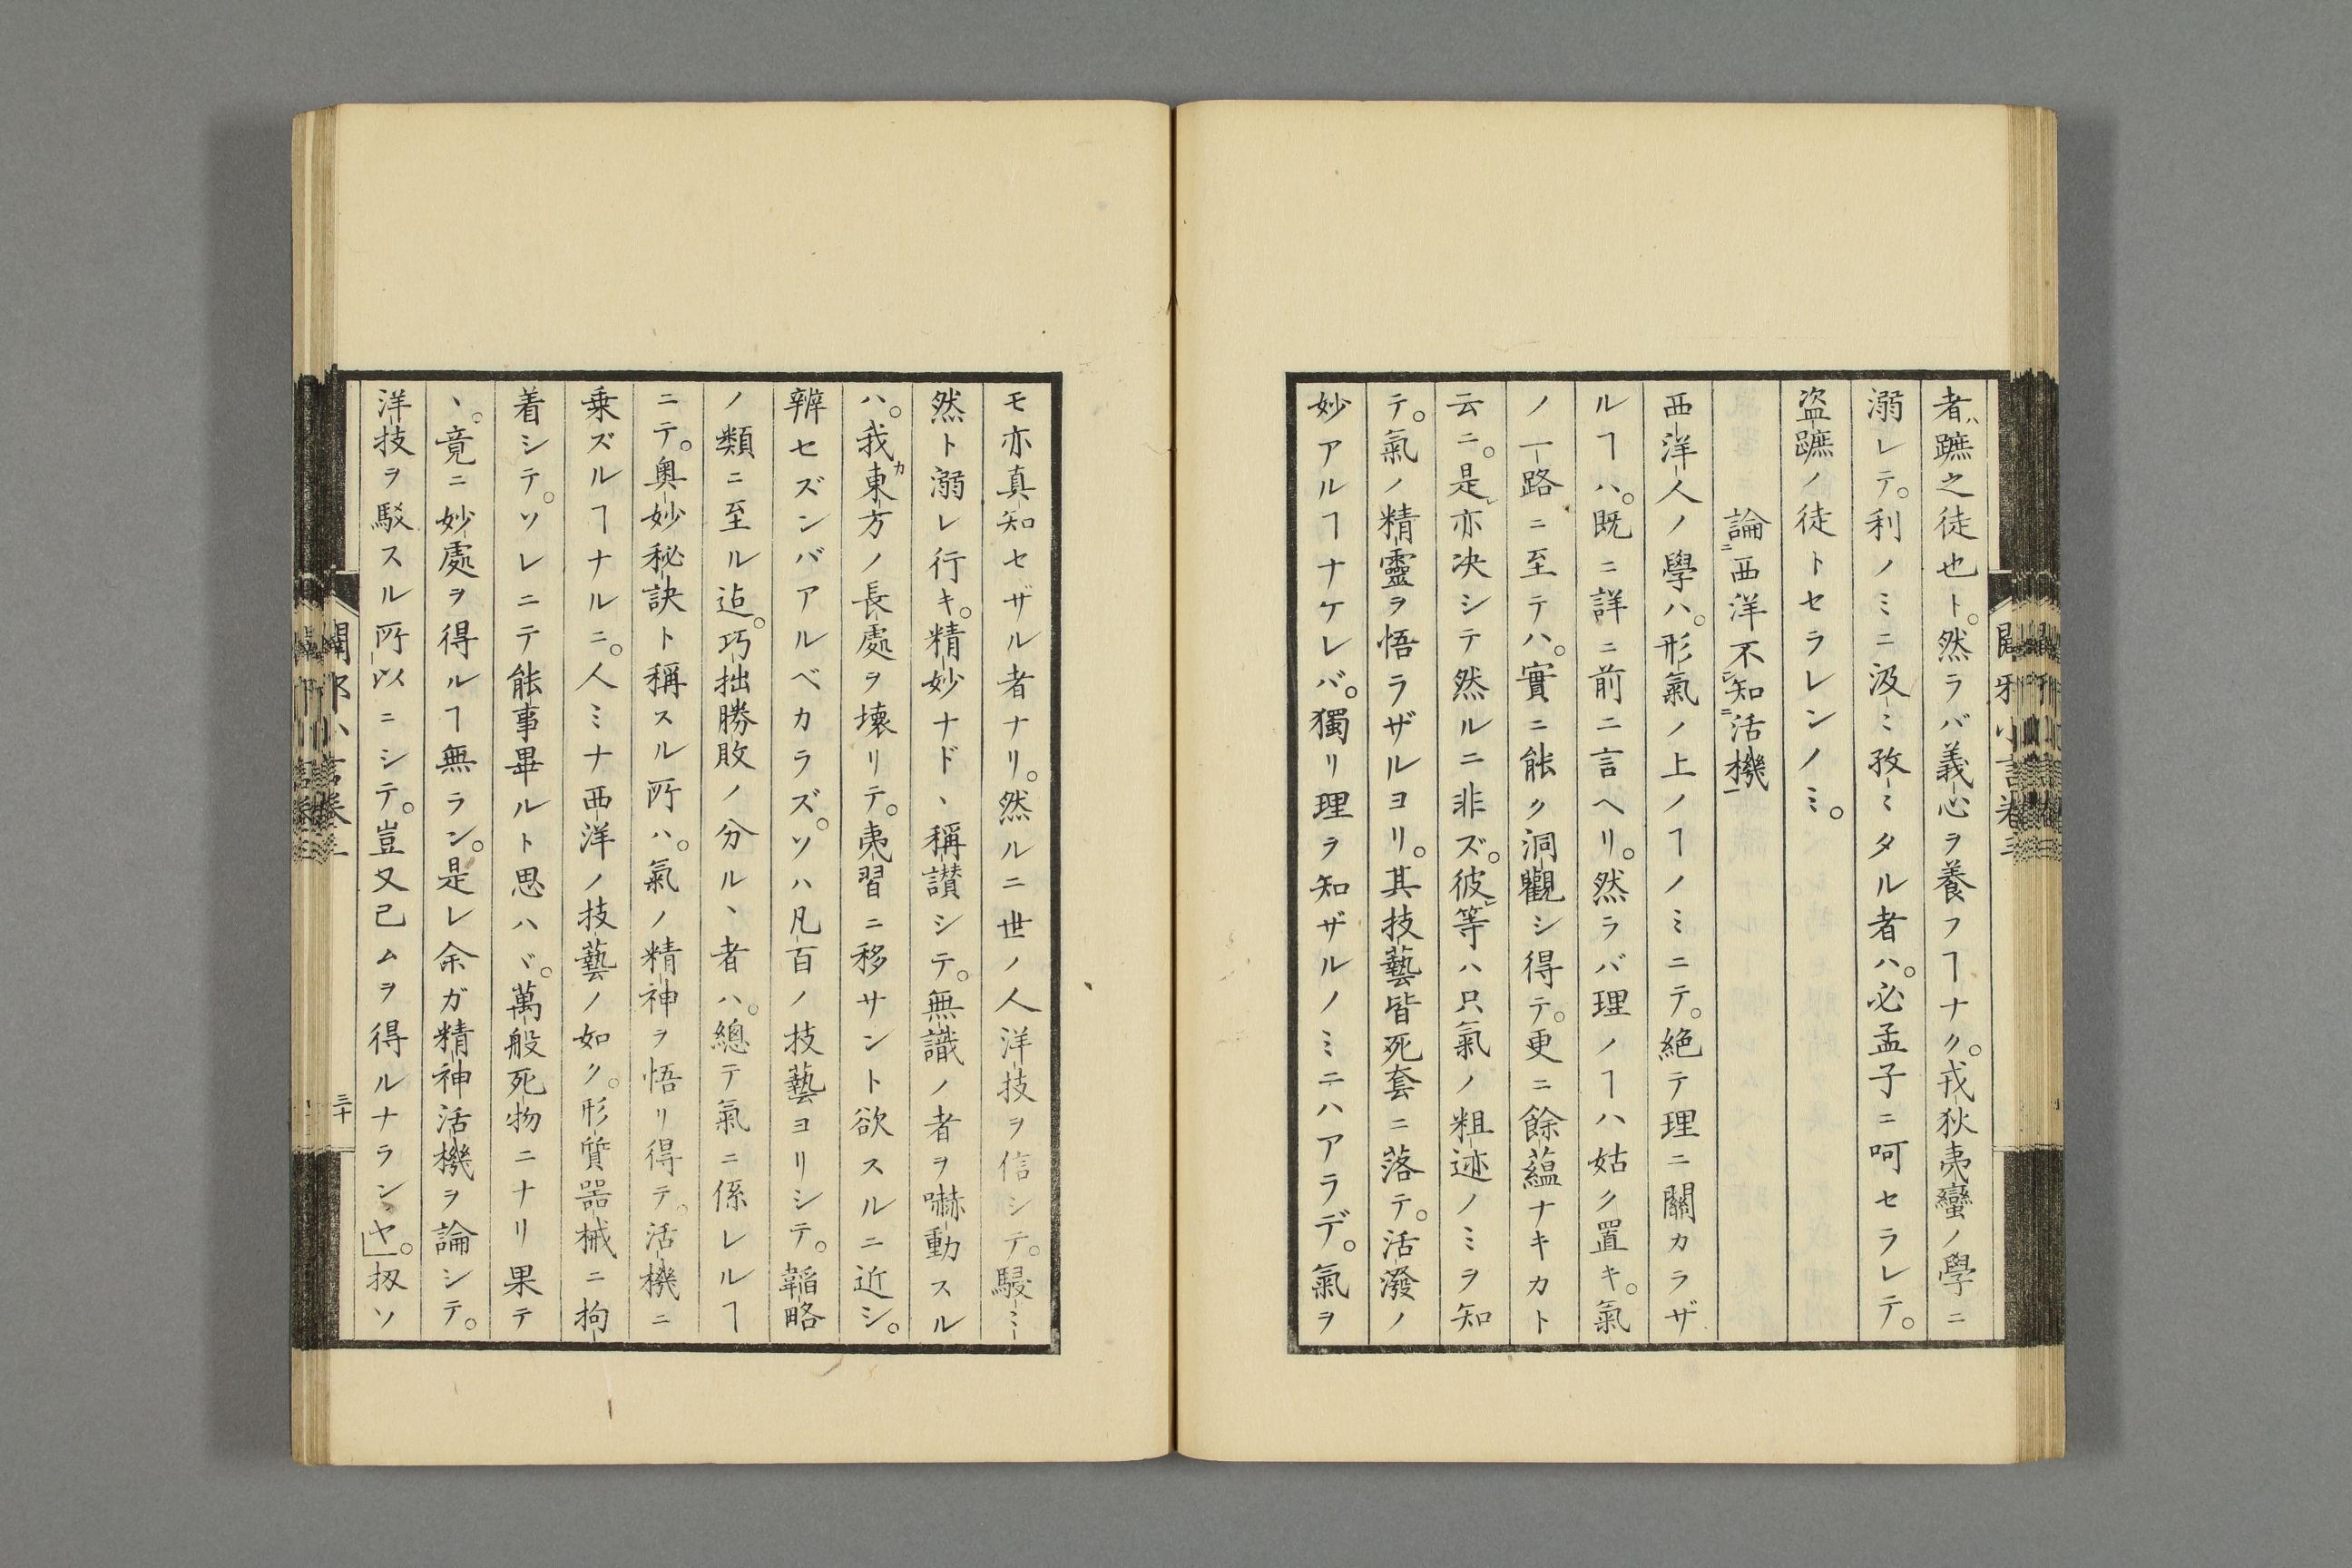 者ハ蹠之徒也ト。然ラバ義心ヲ養フヿナク。戎狄夷蠻ノ學ニ
溺レテ。利ノミニ汲ミ孜ミタル者ハ。必孟子ニ呵セラレテ。
盜蹠ノ徒トセラレンノミ。
論ニ西洋不レ知ニ活機一
西洋人ノ學ハ。形氣ノ上ノヿノミニテ。絶テ理ニ關カラザ
ルヿハ。既ニ詳ニ前ニ言ヘリ。然ラバ理ノヿハ姑ク置キ。氣
ノ一路ニ至テハ。實ニ能ク洞觀シ得テ。更ニ餘蘊ナキカト
云ニ。是レ亦决シテ然ルニ非ズ。彼レ等ハ只氣ノ粗迹ノミヲ知
テ。氣ノ精靈ヲ悟ラザルヨリ。其技藝皆死套ニ落テ。活潑ノ
妙アルヿナケレバ。獨リ理ヲ知ザルノミニハアラデ。氣ヲ
モ亦真知セザル者ナリ。然ルニ世ノ人洋技ヲ信シテ。駸ミ
然ト溺レ行キ。精妙ナドヽ稱讃シテ。無識ノ者ヲ嚇動スル
ハ。我カ東方ノ長處ヲ壞リテ。夷習ニ移サント欲スルニ近シ。
辨セズンバアルベカラズ。ソハ凡百ノ技藝ヨリシテ。韜略
ノ類ニ至ル迠。巧拙勝敗ノ分ルヽ者ハ。總テ氣ニ係レルヿ
ニテ。奥妙秘訣ト稱スル所ハ。氣ノ精神ヲ悟リ得テ。活機ニ
乗ズルヿナルニ。人ミナ西洋ノ技藝ノ如ク。形質噐械ニ拘
着シテ。ソレニテ能事畢ルト思ハヾ。萬般死物ニナリ果テ
ヽ。竟ニ妙處ヲ得ルヿ無ラン。是レ余ガ精神活機ヲ論シテ。
洋技ヲ駁スル所以ニシテ。豈又已ムヲ得ルナランヤ。」扨ソ
闢邪小言卷三
三十